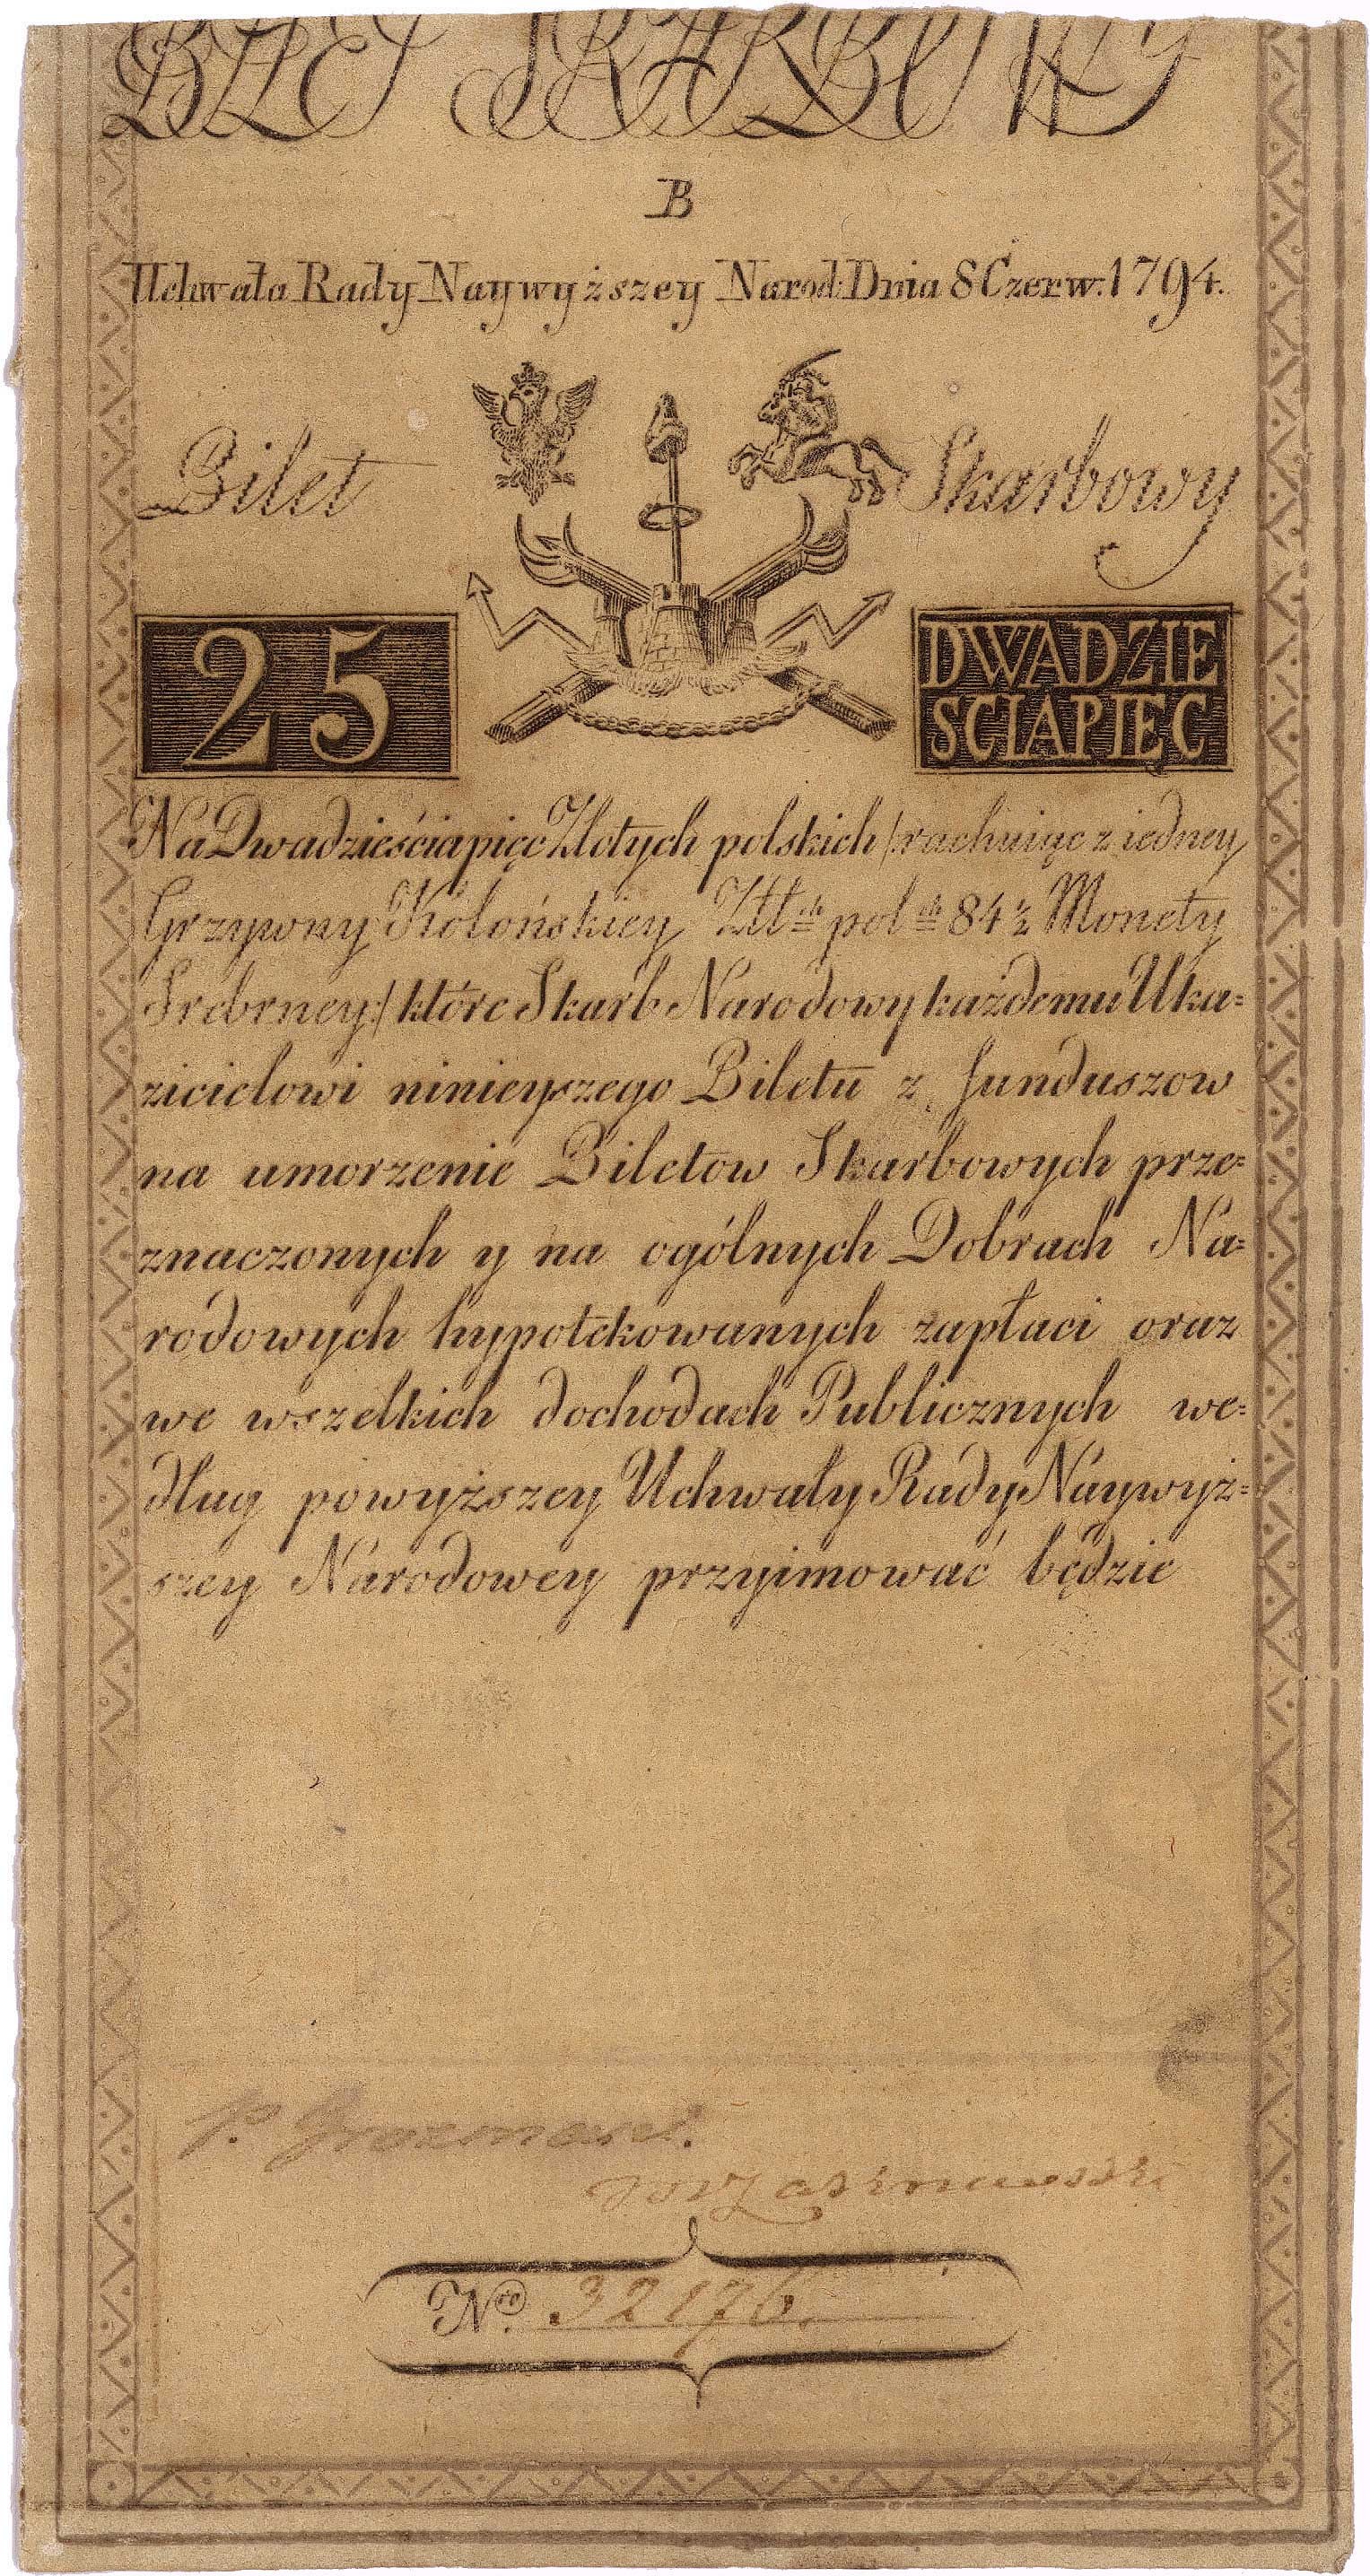 BILET SKARBOWY
B
Uchwała Rady Naywyższey Narod: Dnia 8 Czerw: 1794.
Bilet Skarbowy
25 DWADZIE
SCIAPIĘC
Na Dwadzieściapięć Złotych polskich /:rachuiąc z iedney
Grzywny Kolońskiey Złł=ch pol=ch 84 1/2 Monety
Srebrney:/ które Skarb Narodowy każdemu Uka=
zicielowi ninieyszego Biletu z funduszow
na umorzenie Biletow Skarbowych prze=
znaczonych y na ogólnych Dobrach Na=
rodowych hypotekowanych zapłaci oraz
we wszelkich dochodach Publicznych we=
dług powyższey Uchwały Rady Naywyż=
szey Narodowey przyimować będzie
N<sup>ro</sup>. 32176.